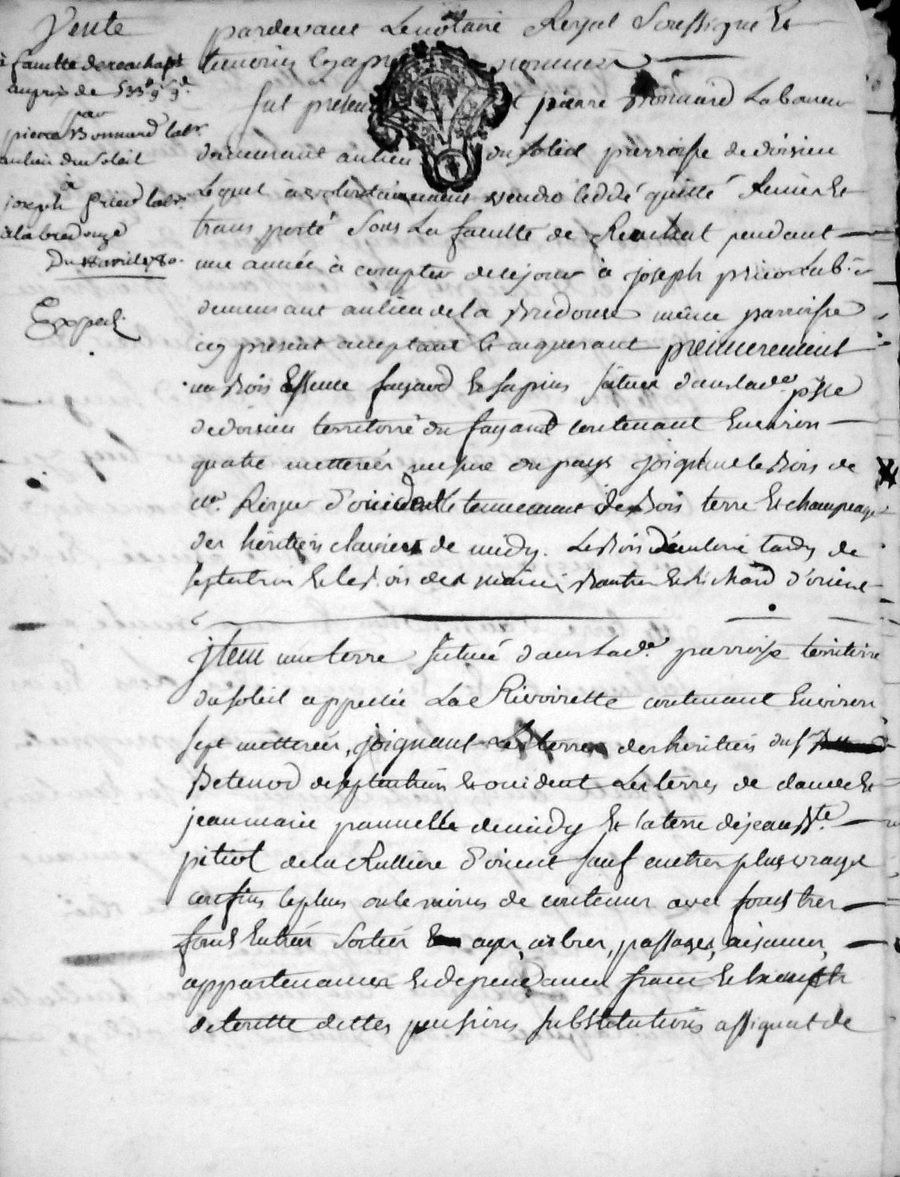 Vente
à faculté de reachapt
au prix de 533# 9s 9d
par
pierre Bonnard labr
au lieu du Soleil
à
joseph prieu labr
à la bredouze
Du avril 80.
Exped
pardevant Le notaire Royal Soussigné Et
temoins cy apres nommes
fut present pierre Bonnard Laboureur
demeurant au lieu du Soleil parroisse de doisieu
Lequel à volontairement vendu ceddé quitté Remis Et
transporté Sous La faculté de Reachat pendant
une année à compter de ce jour à joseph prieu Lab.r
demeurant au lieu de la Bredouze même parroisse
icy present acceptant Et acquerant premierement
un Bois Essence fayard Et sapins Situé dans lad.e psse
de doisieu territoire du fayard contenant Environ
quatre metterées mesure du pays joignant le Bois de
m.r Royer d'occident le tennement de Bois terre Et champeage
des héritiers claviere de midy. Le Bois d'antoine tardy de
septentrion Et le Bois de Et Richard d'orient
jtem une terre Située dans lad.e parroisse territoire
du soleil appellée La Rivoirette contenant Environ
sept metterées, joignant les terres des heritiers du S.r
Betenod de septentrion Et occident Les terres de claude Et
jean marie de midy Et la terre de jean B.te
pitiot de la Rulliere d'orient sauf autres plus vrayes
confins le plus ou le moins de contenu avec fonds tres
fonds Entrées Sorties ayes, arbres, passages, aisances,
appartenances Et dependances franc Et
de toutte dettes pensions substitutions assignat de